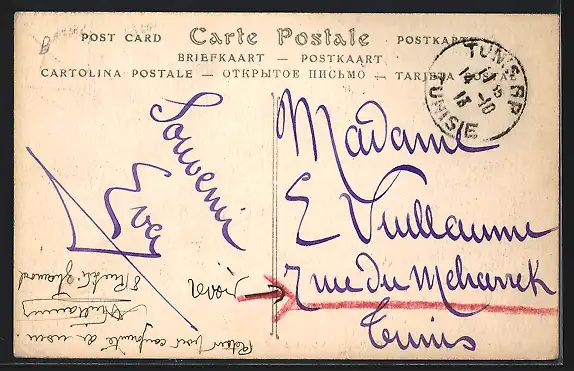 POST CARD Carte Postale POSTKARTE
BRIEFKAART — POSTKAART
CARTOLINA POSTALE — ОТКРЫТОЕ ПИСЬМО — TARJETA POSTAL
TUNIS RP
12 10
13
TUNISIE
Souvenir
Madame
E Vuillaume
7 rue du Mcharrek
Tunis
Retour pour conformité de nom